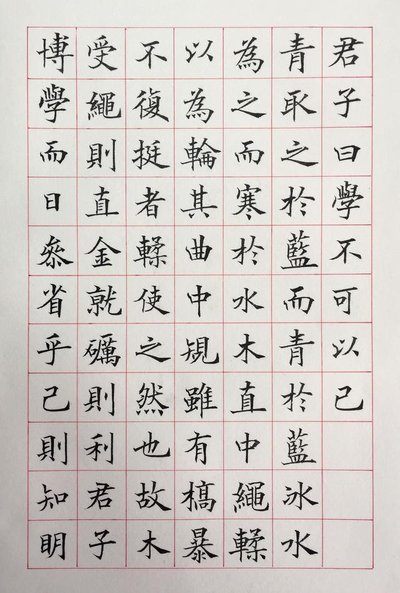 君子曰學不可以已
青取之於藍而青於藍冰水
為之而寒於水木直中繩輮
以為輪其曲中規雖有槁暴
不復挺者輮使之然也故木
受繩則直金就礪則利君子
博學而日參省乎己則知明